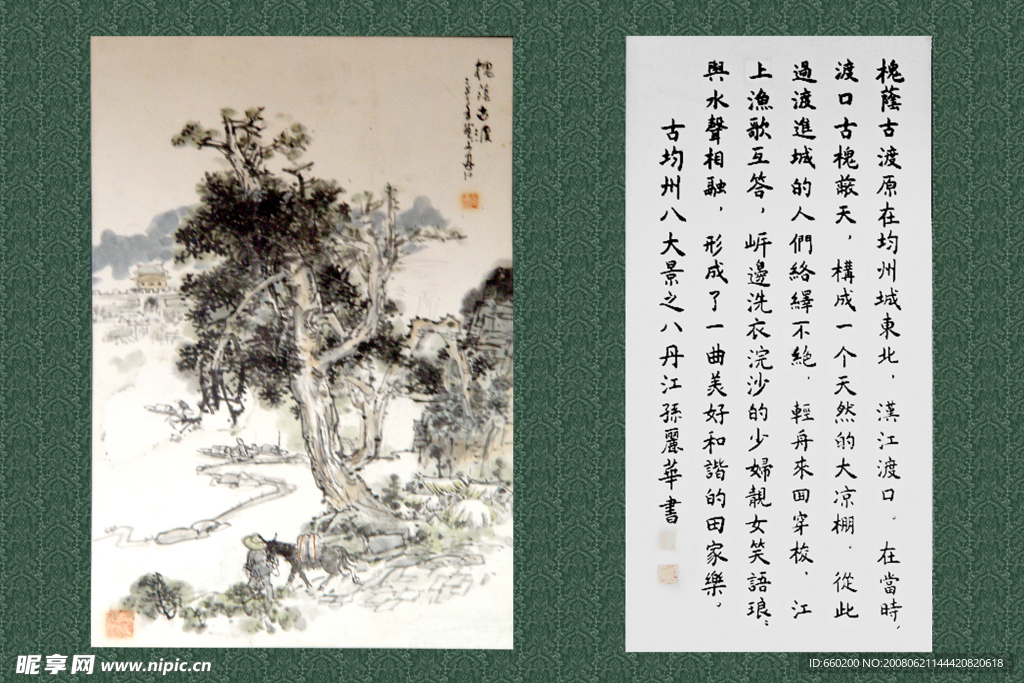 槐蔭古渡
槐蔭古渡原在均州城東北，漢江渡口。在當時，
渡口古槐蔽天，構成一个天然的大凉棚．從此
過渡進城的人們絡繹不絶．輕舟來回穿梭，江
上漁歌互答，岍邊洗衣浣沙的少婦靚女笑語琅：
與水聲相融，形成了一曲美好和諧的田家樂，
古均州八大景之八丹江孫麗華書
昵享网 www.nipic.cn
ID:660200 NO:20080621144420820618